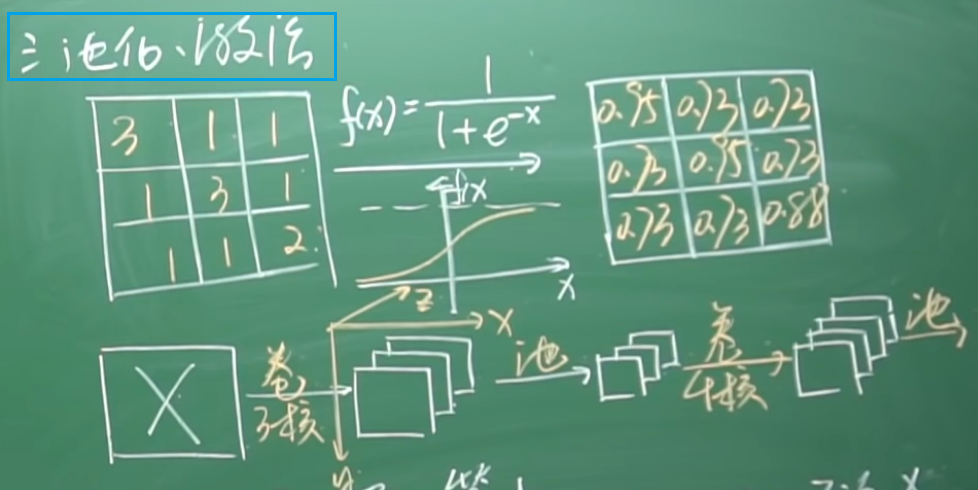 三池化、激活
3 1 1
1 3 1
1 1 2
f(x)=1/(1+e^-x)
f(x
x
0.95 0.73 0.73
0.73 0.95 0.73
0.73 0.73 0.88
X
卷
3核
z
x
y
池
卷
4核
池